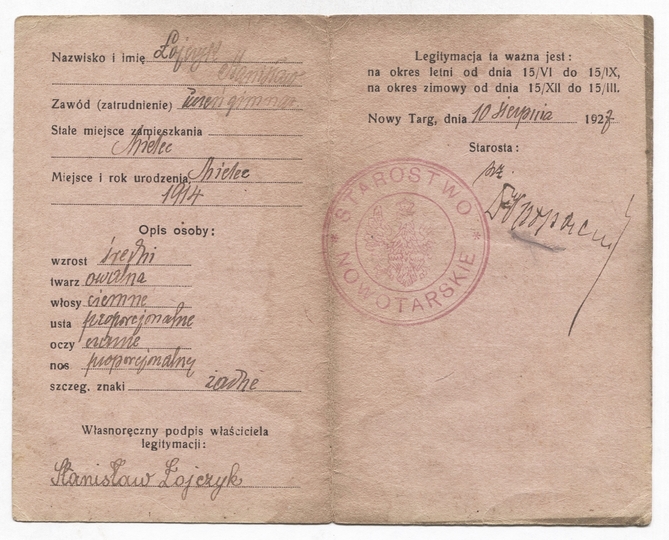 Nazwisko i imię Łojczyk
Stanisław
Zawód (zatrudnienie) uczeń gimnaz.
Stałe miejsce zamieszkania
Mielec
Miejsce i rok urodzenia, Mielec
1914
Opis osoby:
wzrost średni
twarz owalna
włosy ciemne
usta proporcjonalne
oczy
nos proporcjonalny
szczeg. znaki żadne
Własnoręczny podpis właściciela
legitymacji:
Stanisław Łojczyk
Legitymacja ta ważna jest:
na okres letni od dnia 15/VI do 15/IX,
na okres zimowy od dnia 15/XII do 15/III.
Nowy Targ, dnia 10 sierpnia 1927
Starosta:
STAROSTWO
NOWOTARSKIE